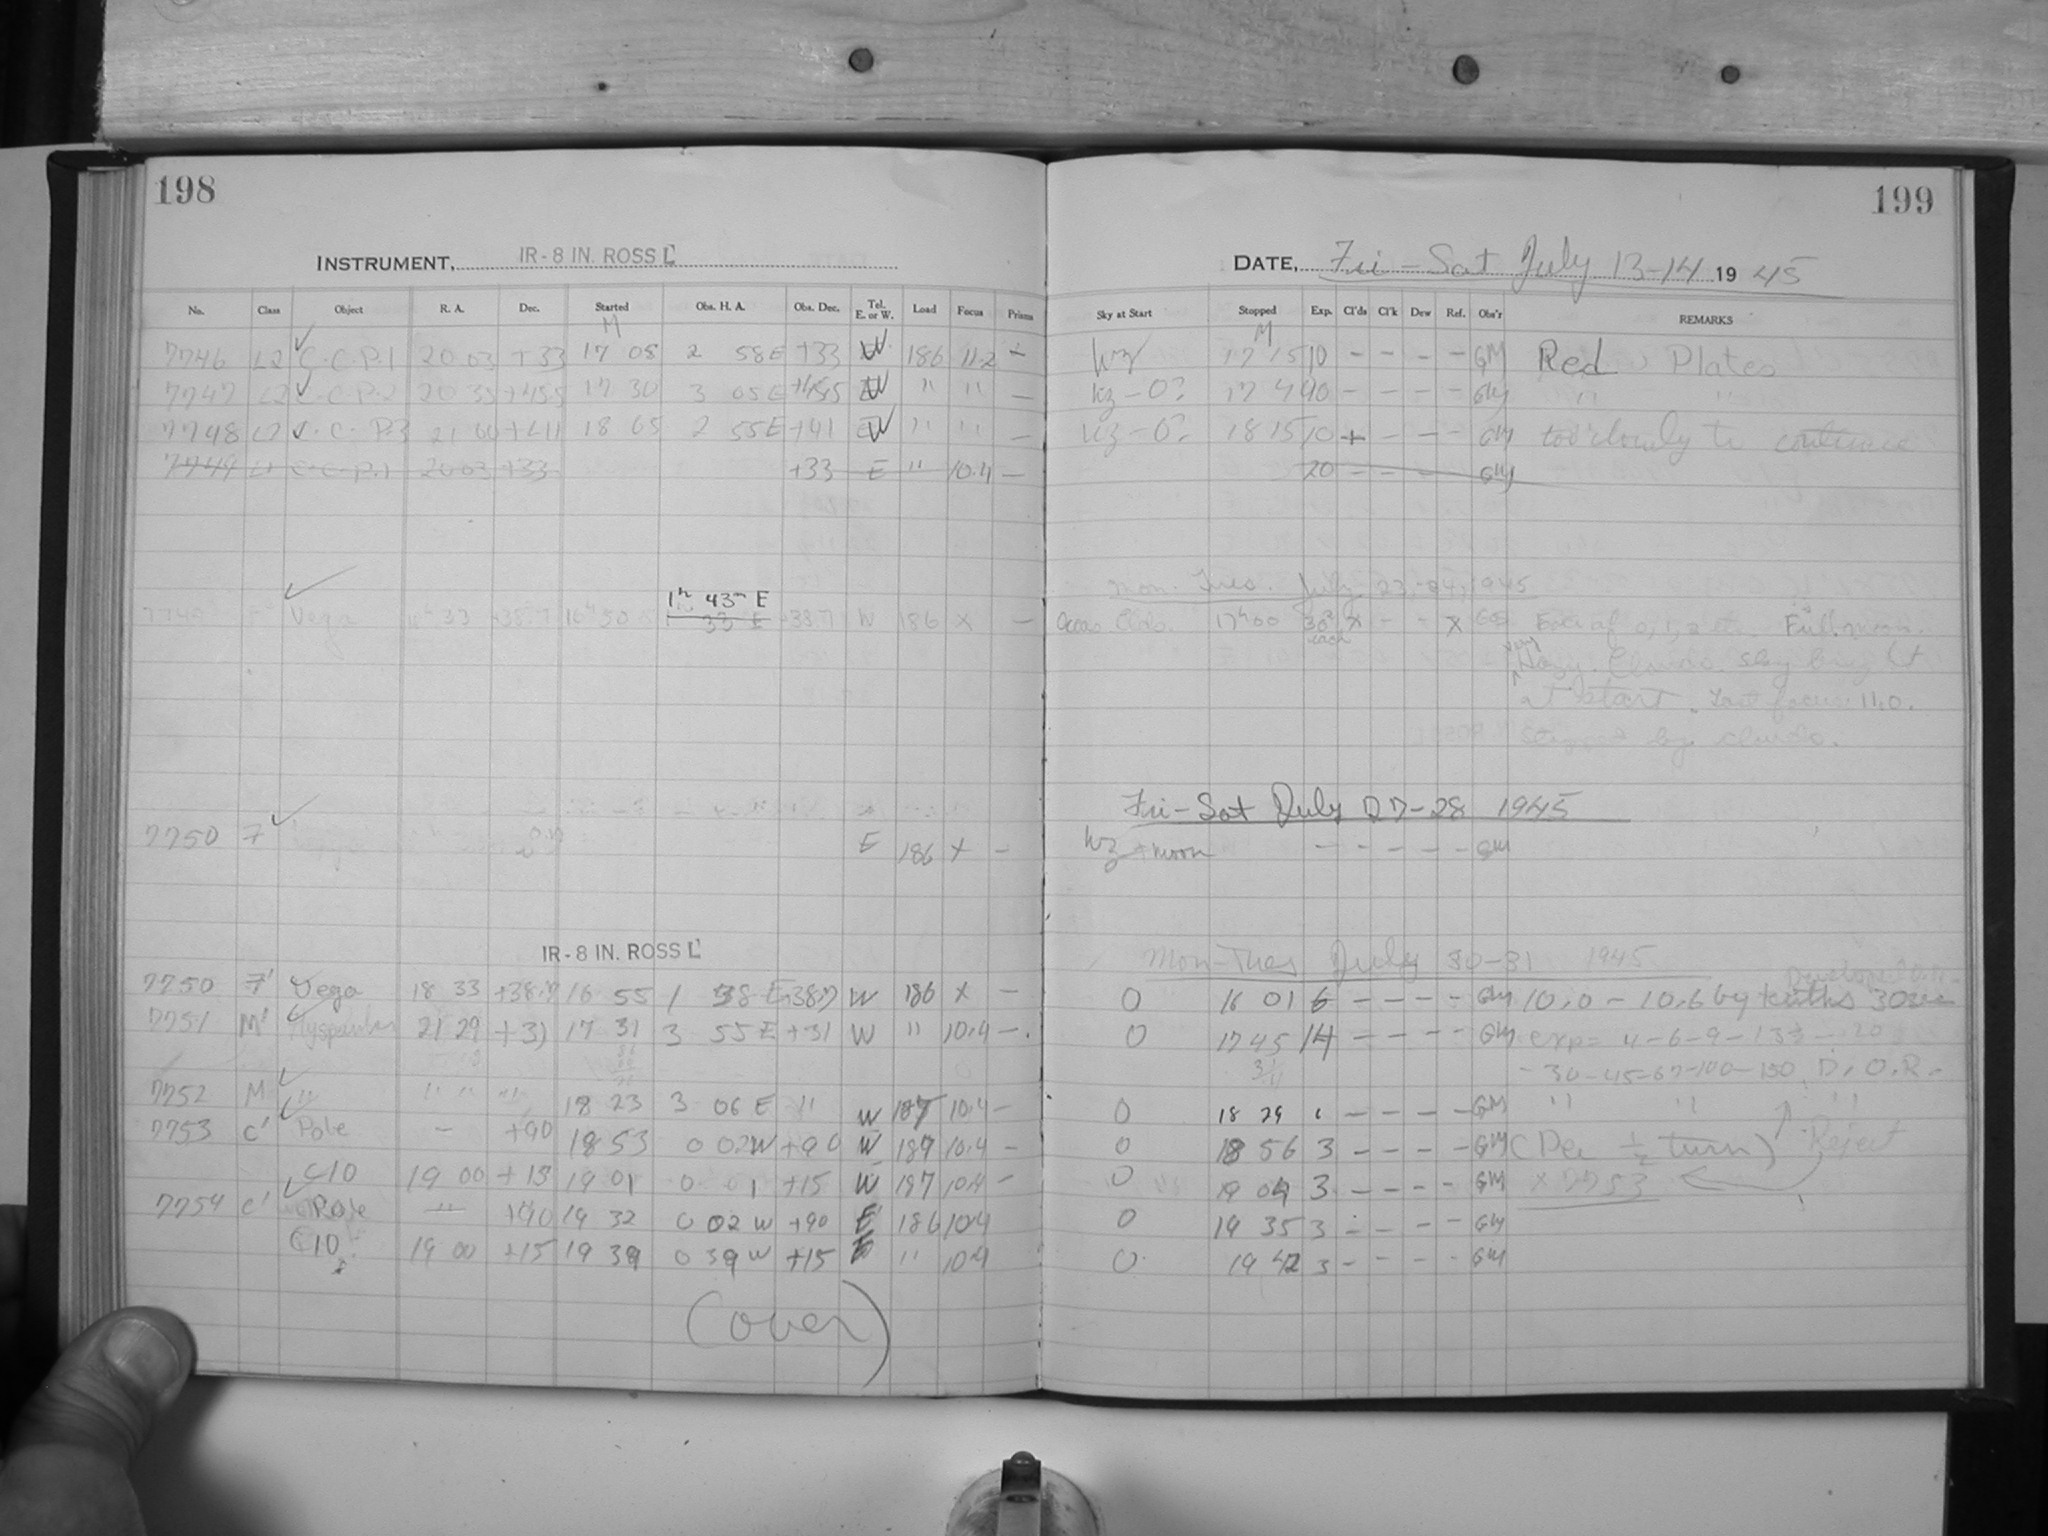 198
199
INSTRUMENT, IR-8 IN. ROSS L
DATE, Fri - Sat July 13-14 1945
No. Class Object R. A. Dec. Started Obs. H. A. Obs. Dec. Tel. E. or W. Load Focus Prisms
Sky at Start Stopped Exp. Cl'ds Cl'k Dew Ref. Obs'r REMARKS
M M
7746 L2 C.C.P.1 20 03 +33 17 08 2 58E +33 W 186 11.2 - hz 17 15 10 - - - - GM Red Plates
7747 L2 C.C.P.2 20 35 +45.5 17 30 3 05E W " " - hz-0? 17 40 - - - - GM " "
7748 L2 C.C.P.3 21 00 +41 18 05 2 55E +41 W " " - hz-0? 18 15 10 + - - - GM too cloudy to continue
7749 L1 C.C.P.1 20 03 +33 +33 E " 10.4 - 20 - - - GM
Mon. Tues. July 23-24, 1945
1h 43m E
7749 F Vega 18 33 +38.7 16h 50 33 E +38.7 W 186 X - Occas Clds. 17h 00 30s X - - X Full moon.
each
very
Hazy. Clouds. Sky brig't
at start. Last focus 11.0.
Stopped by clouds.
Fri-Sat July 27-28 1945
7750 F E 186 X - hz + moon - - - - - GM
IR-8 IN. ROSS L
Mon-Tues July 30-31 1945
7750 F' Vega 18 33 +38.7 16 55 1 38 E +38.7 W 186 X - 0 16 01 6 - - - - GM 10.0 - 10.6 by tenths 30sec
7751 M' 21 29 +31 17 31 3 55 E +31 W " 10.4 - 0 17 45 14 - - - - GM exp = 4-6-9-13½-20
- 30-45-67-100-150 D.O.R.
7752 M " " " " 18 23 3 06 E " W 187 10.4 - 0 18 29 - - - - GM " " "
7753 C' Pole - +90 18 53 0 02W +90 W 187 10.4 - 0 18 56 3 - - - - GM (Dec ½ turn) Reject
C10 19 00 +15 19 01 0 01 +15 W 187 10.4 - 0 19 04 3 - - - - GM X 7753
7754 C' Pole " +90 19 32 0 02 W +90 E 186 10.4 0 19 35 3 - - - - GM
C10 19 00 +15 19 39 0 39 W +15 E " 10.4 0 19 42 3 - - - - GM
(over)